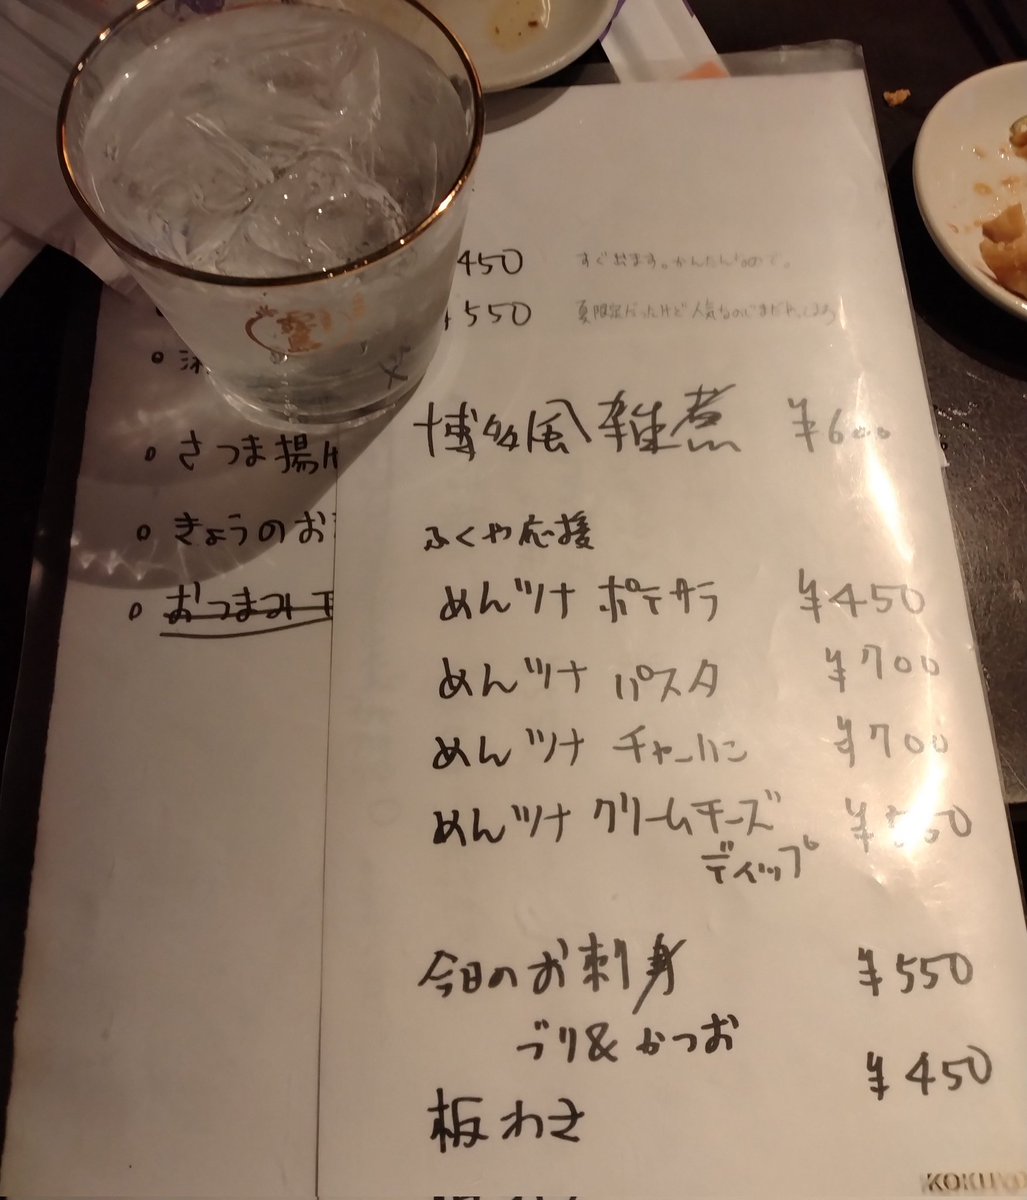 450 すぐ出ます。かんたんなので。
¥550 夏限定だったけど人気なのでまだやってます
博多風雑煮 ¥600
さつま揚げ
ふくや応援
きょうのお
めんツナ ポテサラ ¥450
おつまみ
めんツナ パスタ ¥700
めんツナ チャーハン ¥700
めんツナ クリームチーズ
ディップ
今日のお刺身 ¥550
ブリ&かつお
¥450
板わさ
KOKUYO